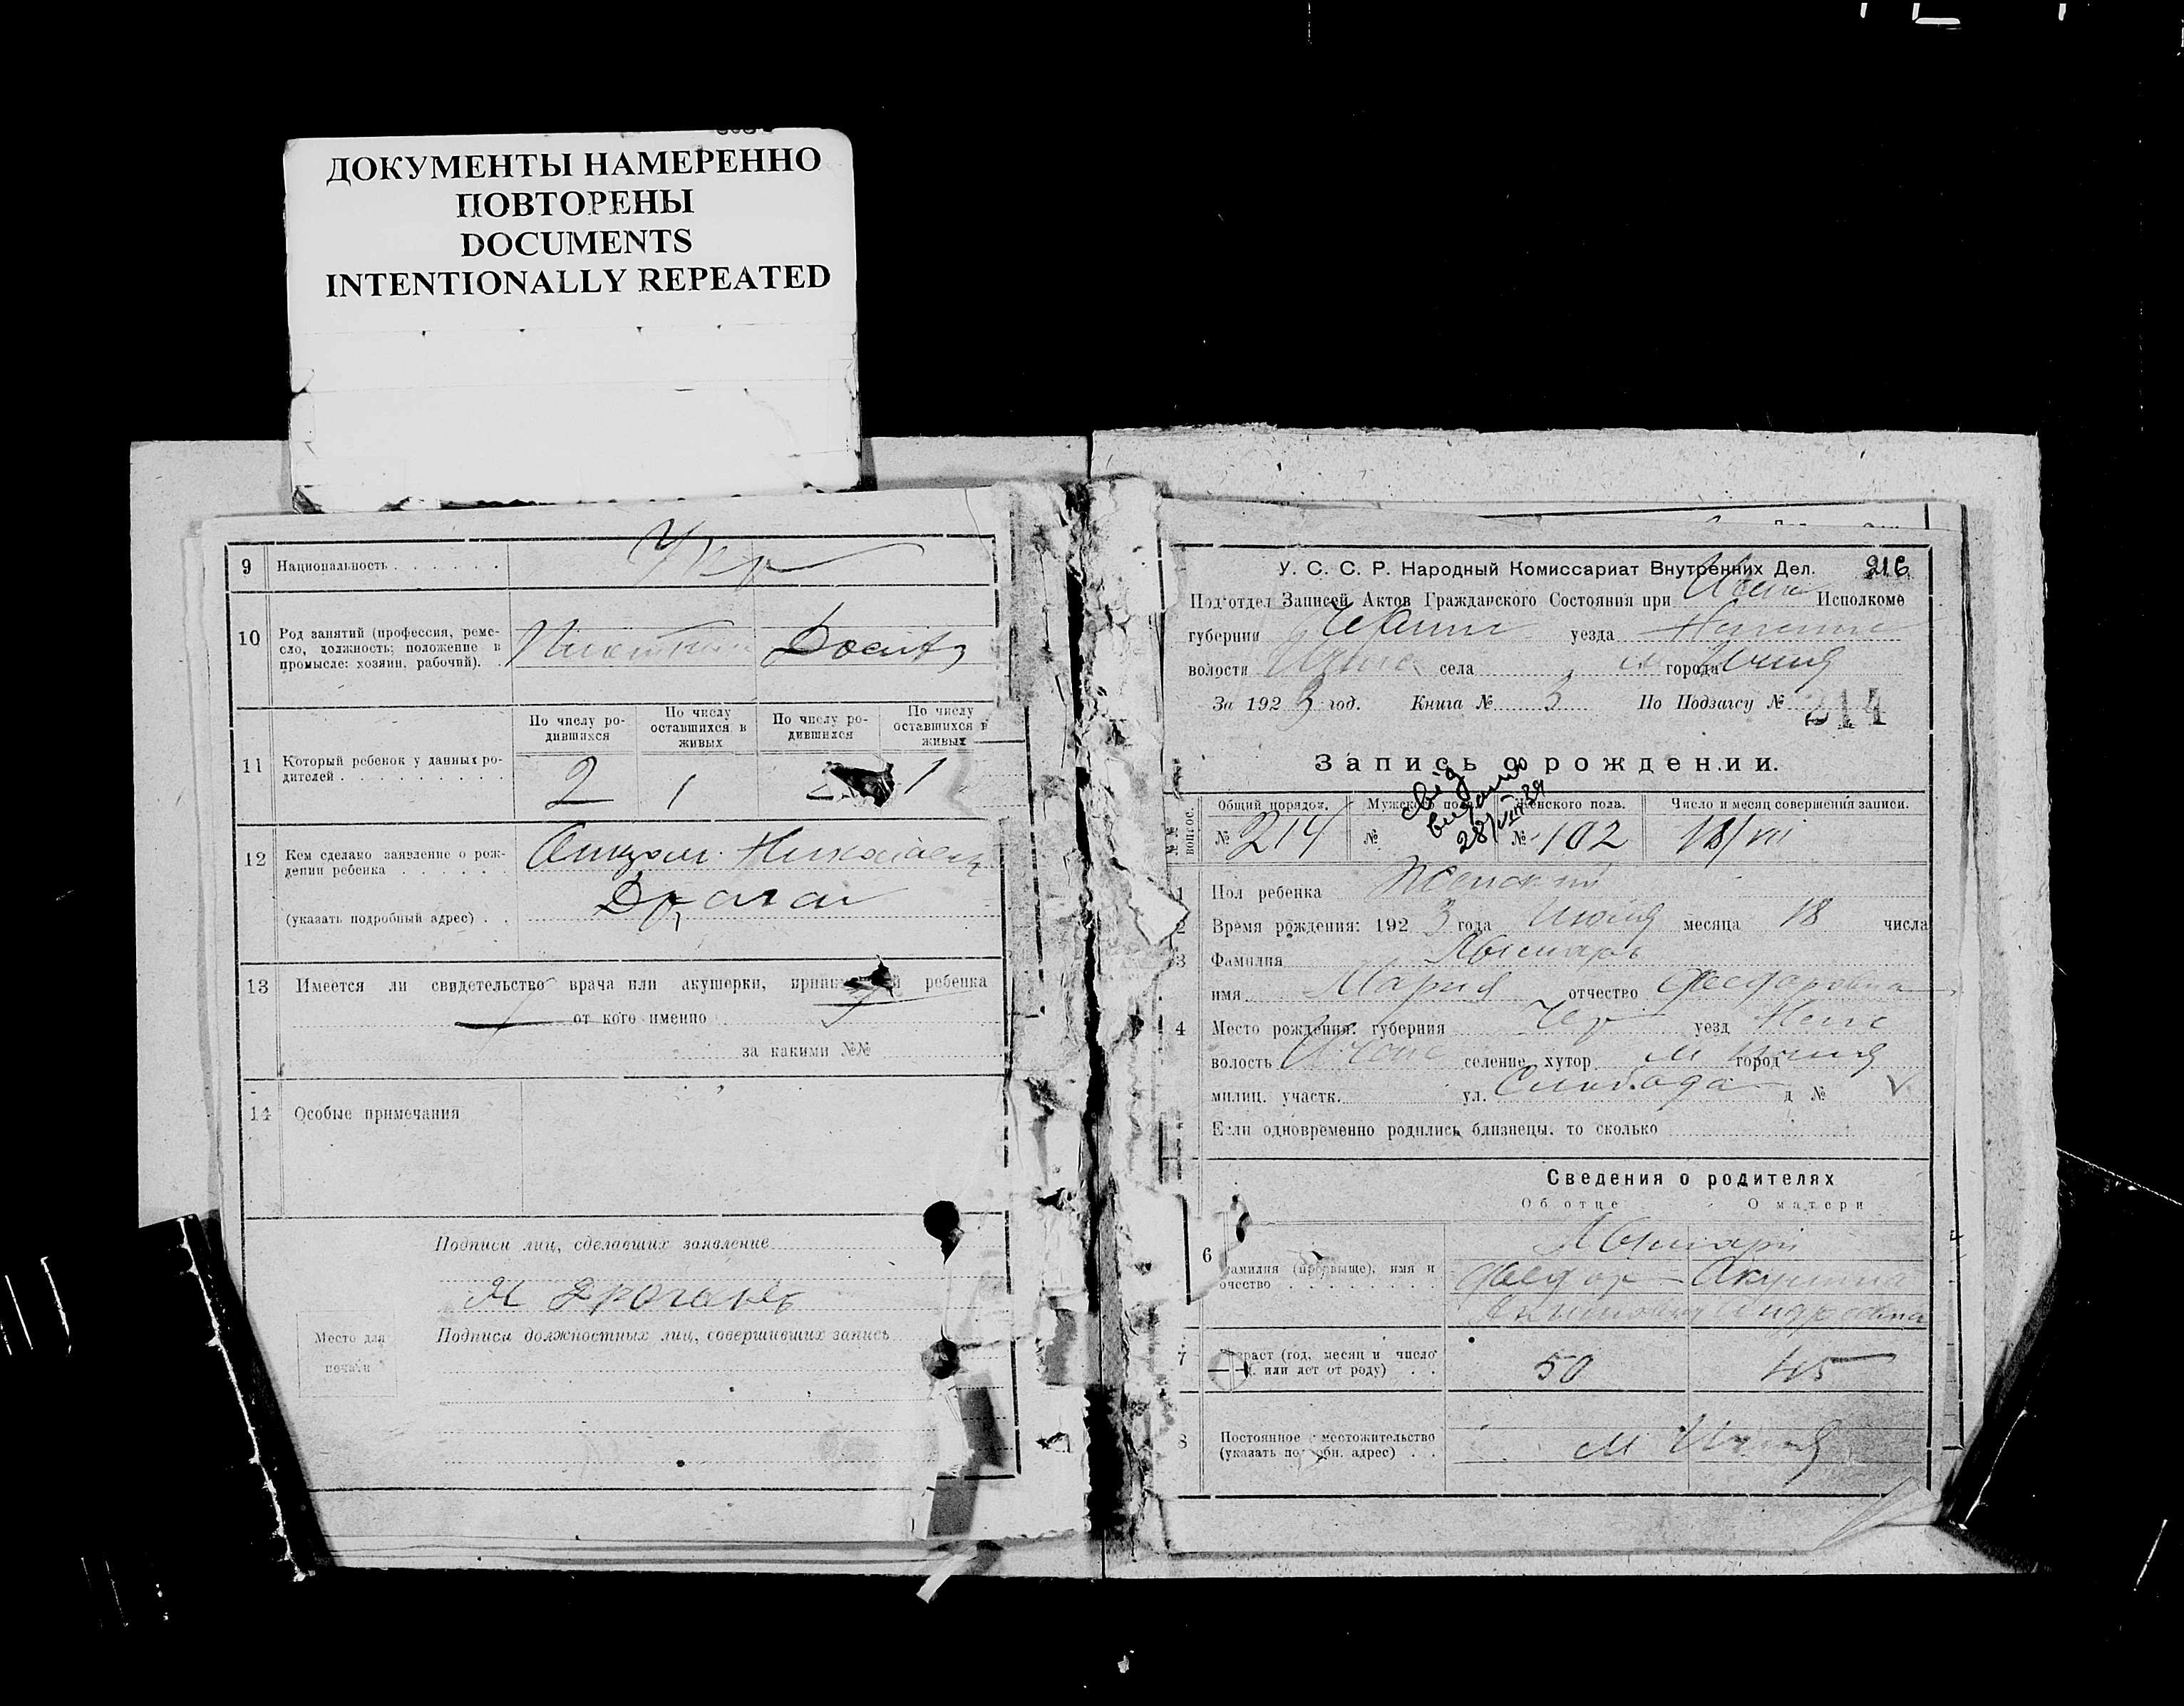 ДОКУМЕНТЫ НАМЕРЕННО
ПОВТОРЕНЫ
DOCUMENTS
INTENTIONALLY REPEATED
9 Национальность . . . . . . Укр
10 Род занятий (профессия, реме-
сло, должность; положение в
промысле: хозяин, рабочий). .
По числу ро-
дившихся
По числу
оставшихся в
живых
По числу ро-
дившихся
По числу
оставшихся в
живых
11 Который ребенок у данных ро-
дителей . . . . . . . . .
2 1 2 1
12 Кем сделано заявление о рож-
дении ребенка . . . . . .
Отцом Николаем
Драган
(указать подробный адрес) . .
13 Имеется ли свидетельство врача или акушерки, ребенка
от кого именно
за какими №№
14 Особые примечания
Подписи лиц, сделавших заявление
Н Драганъ
Место для
печати
Подписи должностных лиц, совершивших запись
У. С. С. Р. Народный Комиссариат Внутренних Дел. 216
Подотдел Записей Актов Гражданского Состояния при Исполкоме
губернии уезда
волости села м города Ичня
За 1923 год. Книга № 3 По Подзагсу № 214
Запись о рождении.
свід
видано
28/VIII 39
№№ вопрос.
Общий порядок. Мужского пола. Женского пола. Число и месяц совершения записи.
№ 214 № № 102 18/VII
1 Пол ребенка Женский
2 Время рождения: 1923 года Июля месяца 18 числа
3 Фамилия
имя Мария отчество Федоровна
4 Место рождения: губерния Чер уезд Неж
волость Ичнс селение, хутор м город Ичня
милиц. участк. ул. Слобода д №
Если одновременно родились близнецы, то сколько
Сведения о родителях
Об отце О матери
6 Фамилия (прозвище), имя и
отчество . . . . . . . . .
Федор Акулина
Андреевна
7 Возраст (год, месяц и число
или лет от роду) . .
50 45
8 Постоянное местожительство
(указать подробн. адрес) . .
м Ичня